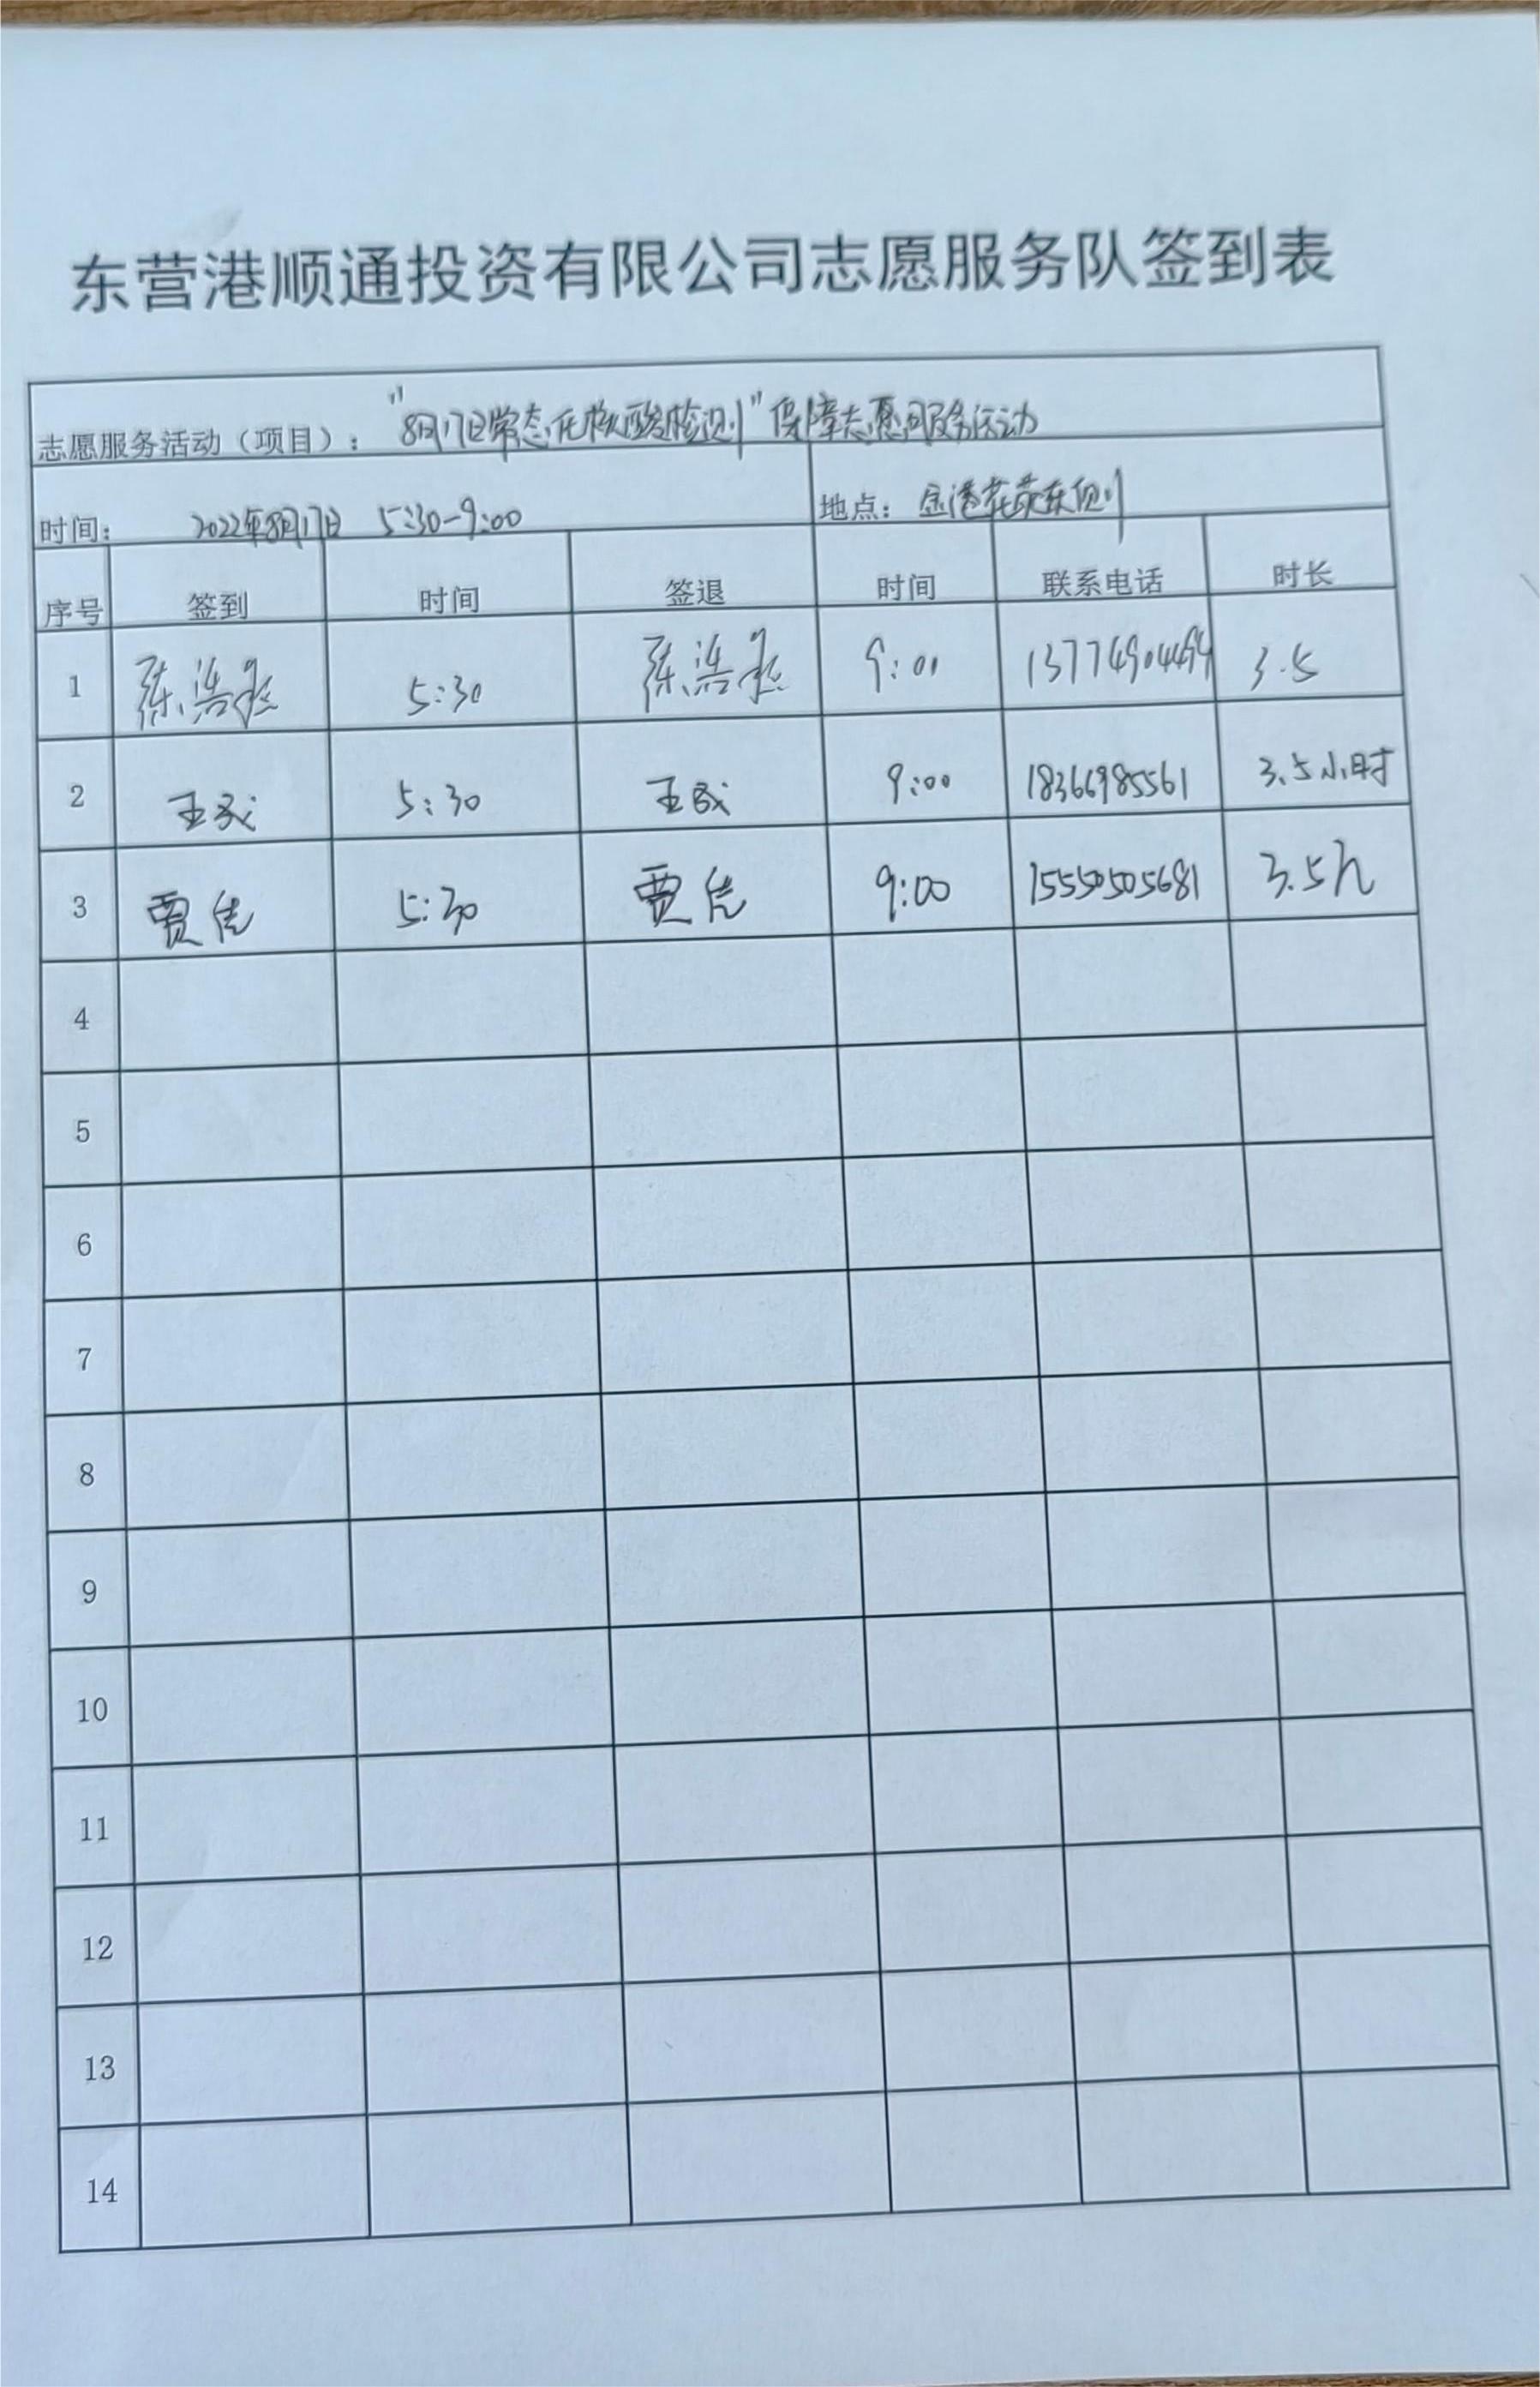 东营港顺通投资有限公司志愿服务队签到表
志愿服务活动（项目）： "8月17日常态化核酸检测"保障志愿服务活动
时间： 2022年8月17日 5:30-9:00 地点： 金港花苑东侧
序号 签到 时间 签退 时间 联系电话 时长
1 陈浩 5:30 陈浩 9:00 13774904494 3.5
2 王成 5:30 王成 9:00 18366985561 3.5小时
3 贾 5:30 贾 9:00 15550505681 3.5h
4
5
6
7
8
9
10
11
12
13
14